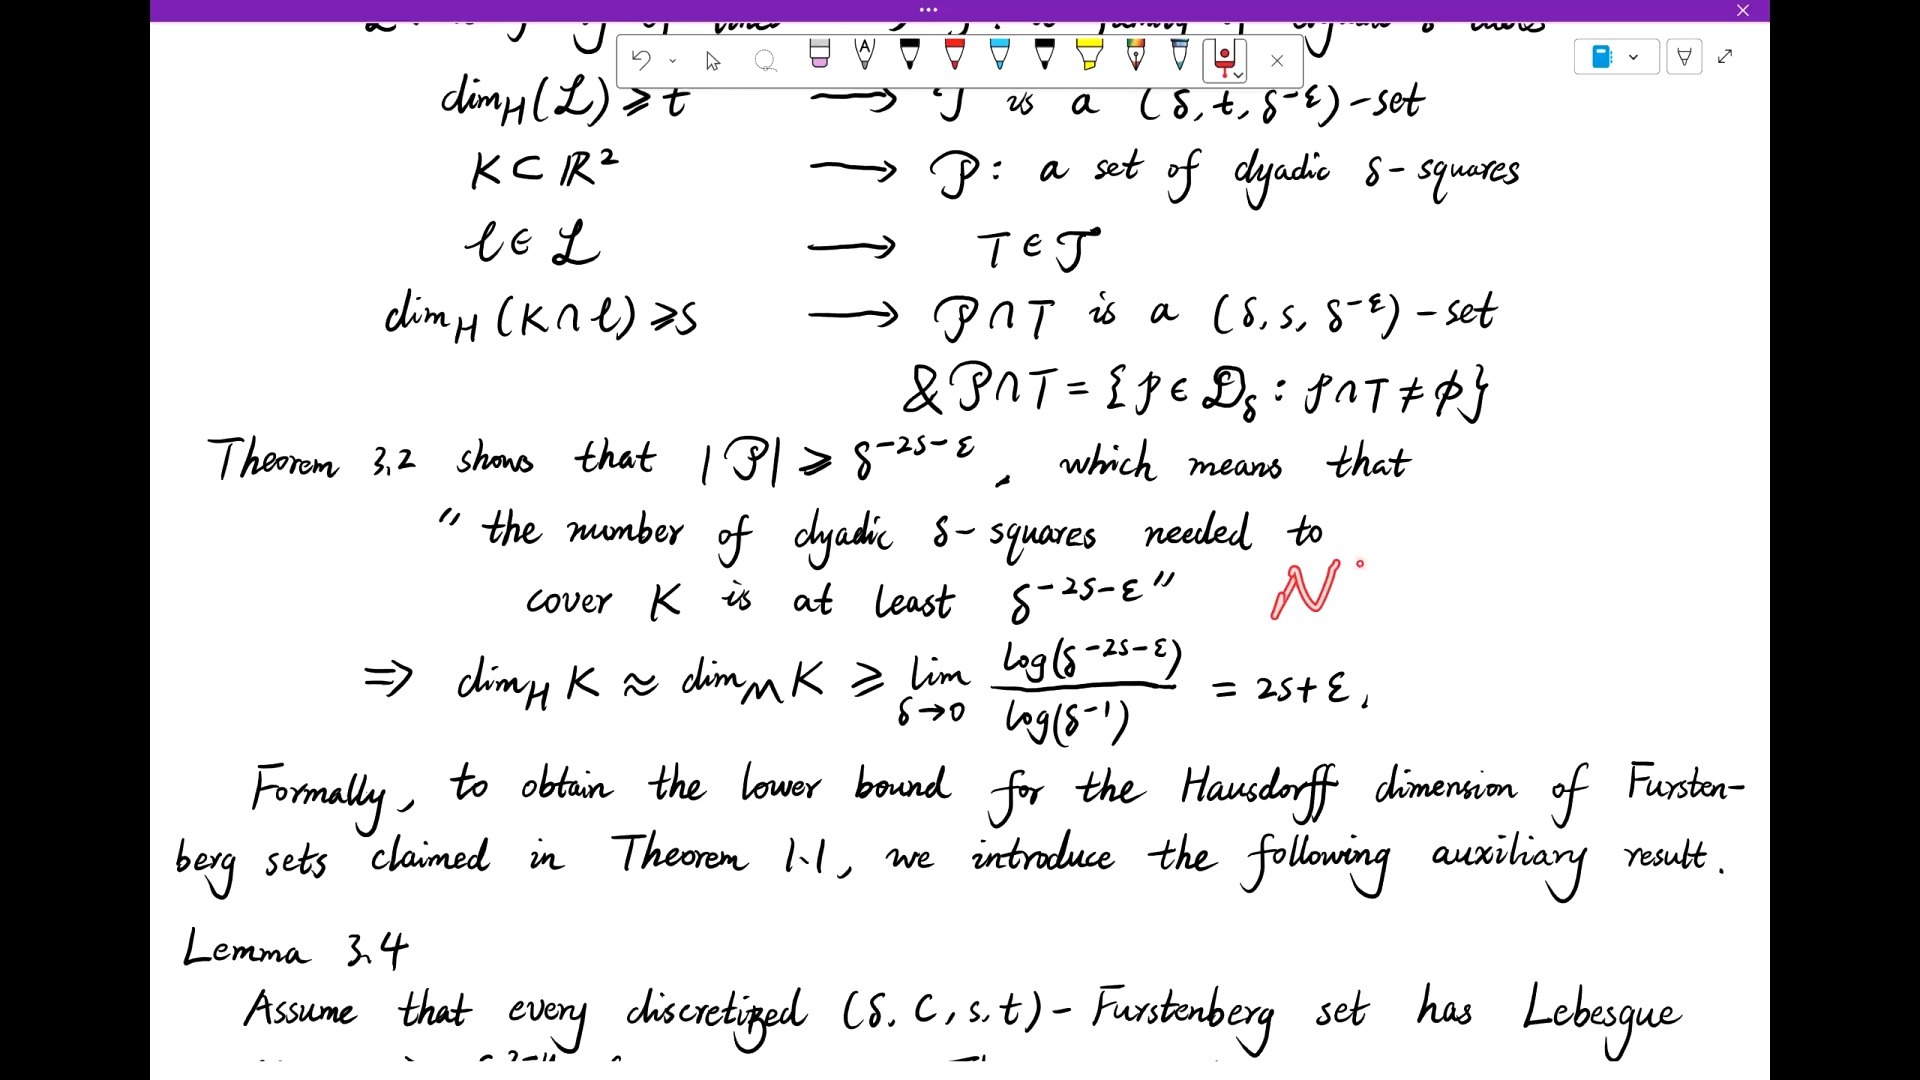 dim_H(ℒ) ≥ t ⟶ 𝒯 is a (δ, t, δ^{-ε})-set
K ⊂ ℝ² ⟶ 𝒫: a set of dyadic δ-squares
ℓ ∈ ℒ ⟶ T ∈ 𝒯
dim_H(K∩ℓ) ≥ s ⟶ 𝒫∩T is a (δ, s, δ^{-ε})-set
& 𝒫∩T = {p ∈ 𝒟_δ : p∩T ≠ ϕ}
Theorem 3.2 shows that |𝒫| ≥ δ^{-2s-ε}, which means that
"the number of dyadic δ-squares needed to
cover K is at least δ^{-2s-ε}" N
⇒ dim_H K ≈ dim_M K ≥ lim_{δ→0} log(δ^{-2s-ε}) / log(δ^{-1}) = 2s+ε.
Formally, to obtain the lower bound for the Hausdorff dimension of Fursten-
berg sets claimed in Theorem 1.1, we introduce the following auxiliary result.
Lemma 3.4
Assume that every discretized (δ, C, s, t)-Furstenberg set has Lebesgue